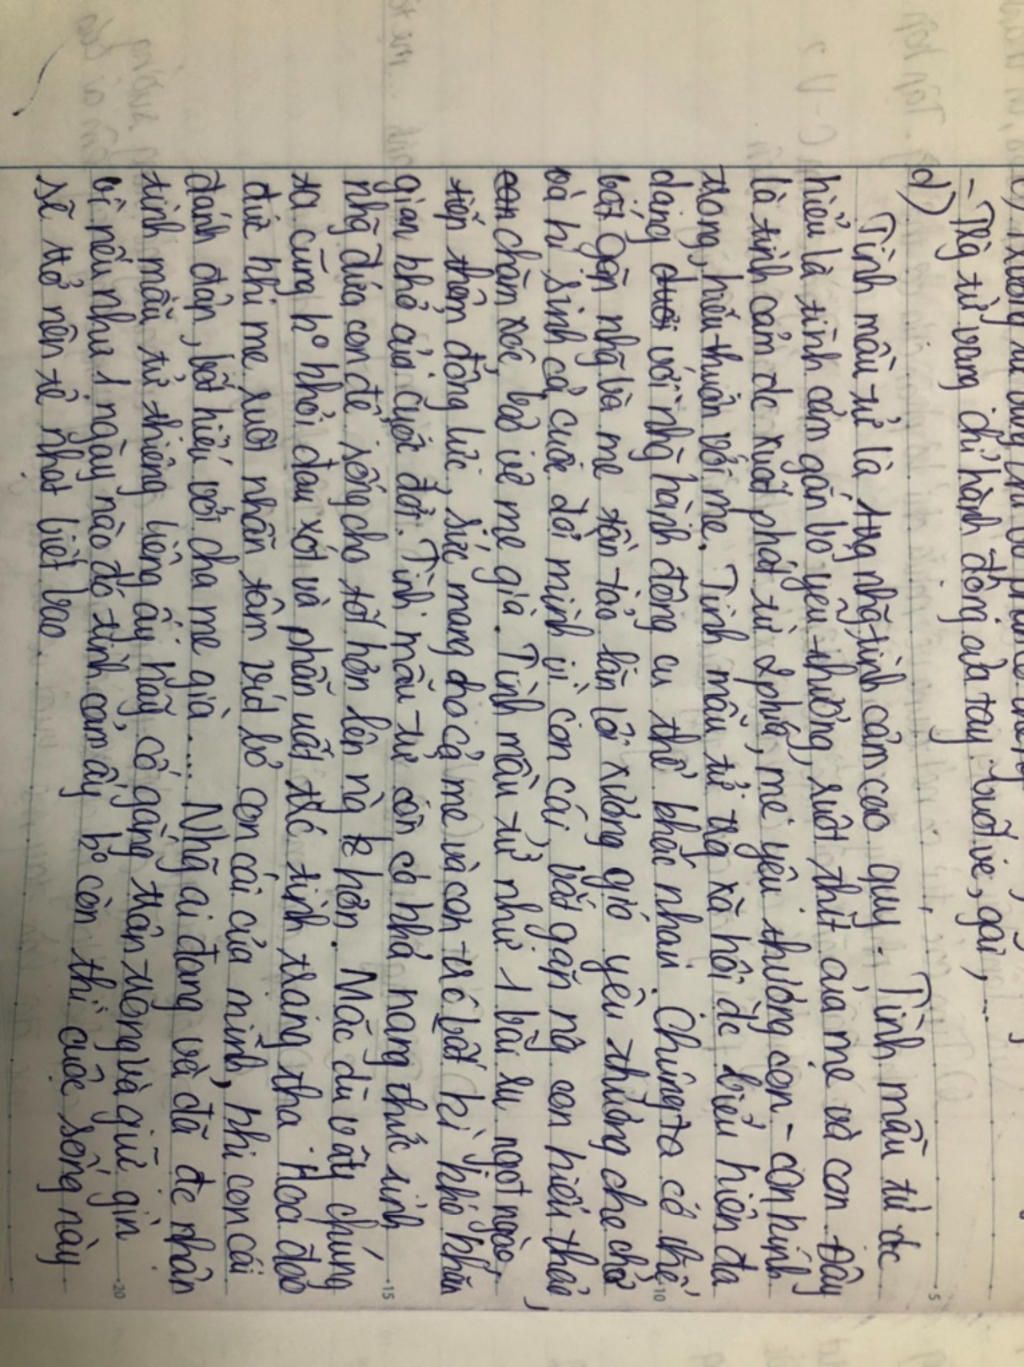 - Từ tử vong chỉ hành động của tay: vuốt ve, gãi, ...
d)
Tình mẫu tử là những tình cảm cao quý. Tình mẫu tử đc
hiểu là tình cảm gắn bó yêu thương, ruột thịt của mẹ và con. Đây
là tình cảm đc xuất phát từ 2 phía, mẹ yêu thương con - con kính
trọng, hiếu thuận với mẹ. Tình mẫu tử trg xã hội đc biểu hiện đa
dạng với nhg hành động cụ thể khác nhau. Chúng ta có thể
bắt gặp nhg bà mẹ tần tảo lặn lội sương gió yêu thương che chở
và hi sinh cả cuộc đời mình vì con cái, bắt gặp ng con hiếu thảo,
chăm sóc, bảo vệ mẹ già. Tình mẫu tử như 1 bài ru ngọt ngào,
tiếp thêm động lực, sức mạng cho cả mẹ và con trc bất kì khó khăn
gian khổ của cuộc đời. Tình mẫu tử còn có khả nang thức tỉnh
nhg đứa con để sống cho tốt hơn lên ng hơn. Mặc dù vậy chúng
ta cũng ko khỏi đau xót và phẫn uất trc tình trạng tha hoá đạo
đức khi mẹ ruột nhẫn tâm vứt bỏ con cái của mình, khi con cái
đánh đập, bất hiếu với cha mẹ già.... Nhg ai đang và đã đc nhận
tình mẫu tử thiêng liêng ấy hãy cố gắng trân trọng và giữ gìn
vì nếu như 1 ngày nào đó tình cảm ấy ko còn thì cuộc sống này
sẽ trở nên tẻ nhạt biết bao.
5
10
15
20